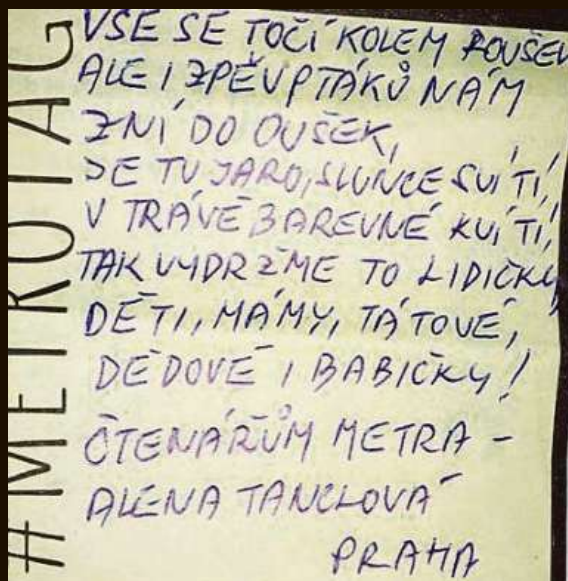 #METROTAG
VŠE SE TOČÍ KOLEM ROUŠEK
ALE I ZPĚV PTÁKŮ NÁM
ZNÍ DO OUŠEK,
JE TU JARO, SLUNCE SVÍTÍ,
V TRÁVĚ BAREVNÉ KVÍTÍ,
TAK VYDRŽME TO LIDIČKY,
DĚTI, MÁMY, TÁTOVÉ,
DĚDOVÉ I BABIČKY!
ČTENÁŘŮM METRA -
ALENA TANCLOVÁ
PRAHA